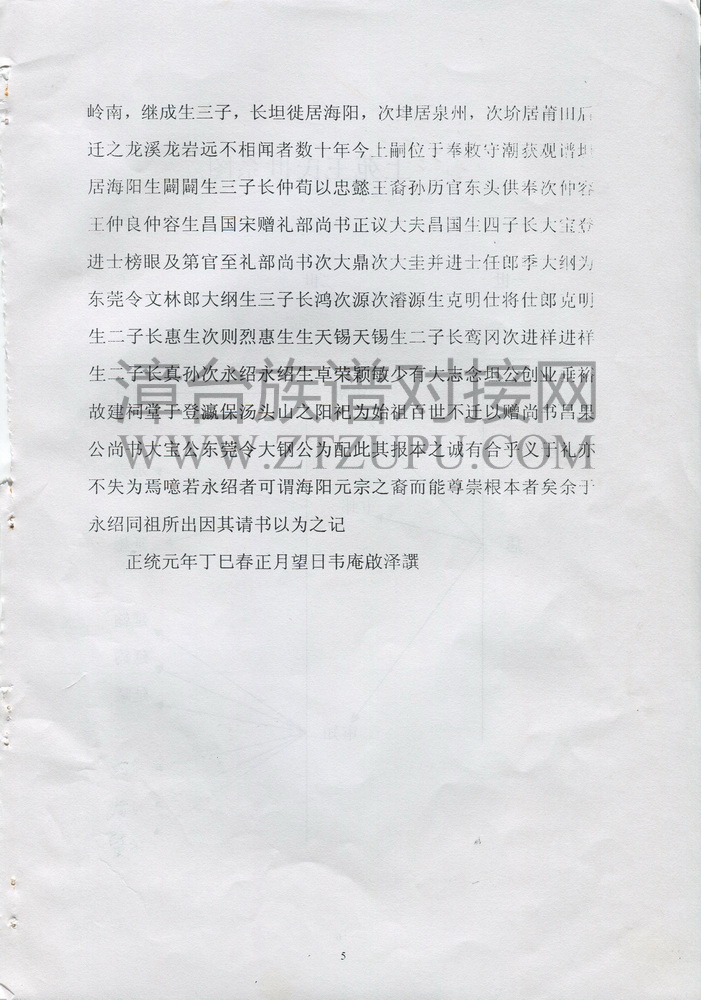 岭南，继成生三子，长坦徙居海阳，次垏居泉州，次㘭居莆田后
迁之龙溪龙岩远不相闻者数十年今上嗣位于奉敕守潮获观谱坦
居海阳生闢闢生三子长仲荀以忠懿王裔孙历官东头供奉次仲容
王仲良仲容生昌国宋赠礼部尚书正议大夫昌国生四子长大宝登
进士榜眼及第官至礼部尚书次大鼎次大圭并进士任郎季大纲为
东莞令文林郎大纲生三子长鸿次源次濬源生克明仕将仕郎克明
生二子长惠生次则烈惠生生天锡天锡生二子长鸾冈次进祥进祥
生二子长真孙次永绍永绍生卓荣颖敏少有大志念坦公创业垂裕
故建祠堂于登瀛保汤头山之阳祀为始祖百世不迁以赠尚书昌果
公尚书大宝公东莞令大钢公为配此其报本之诚有合乎义于礼亦
不失为焉噫若永绍者可谓海阳元宗之裔而能尊崇根本者矣余于
永绍同祖所出因其请书以为之记
正统元年丁巳春正月望日韦庵啟泽譔
漳台族谱对接网
WWW.ZTZUPU.COM
5